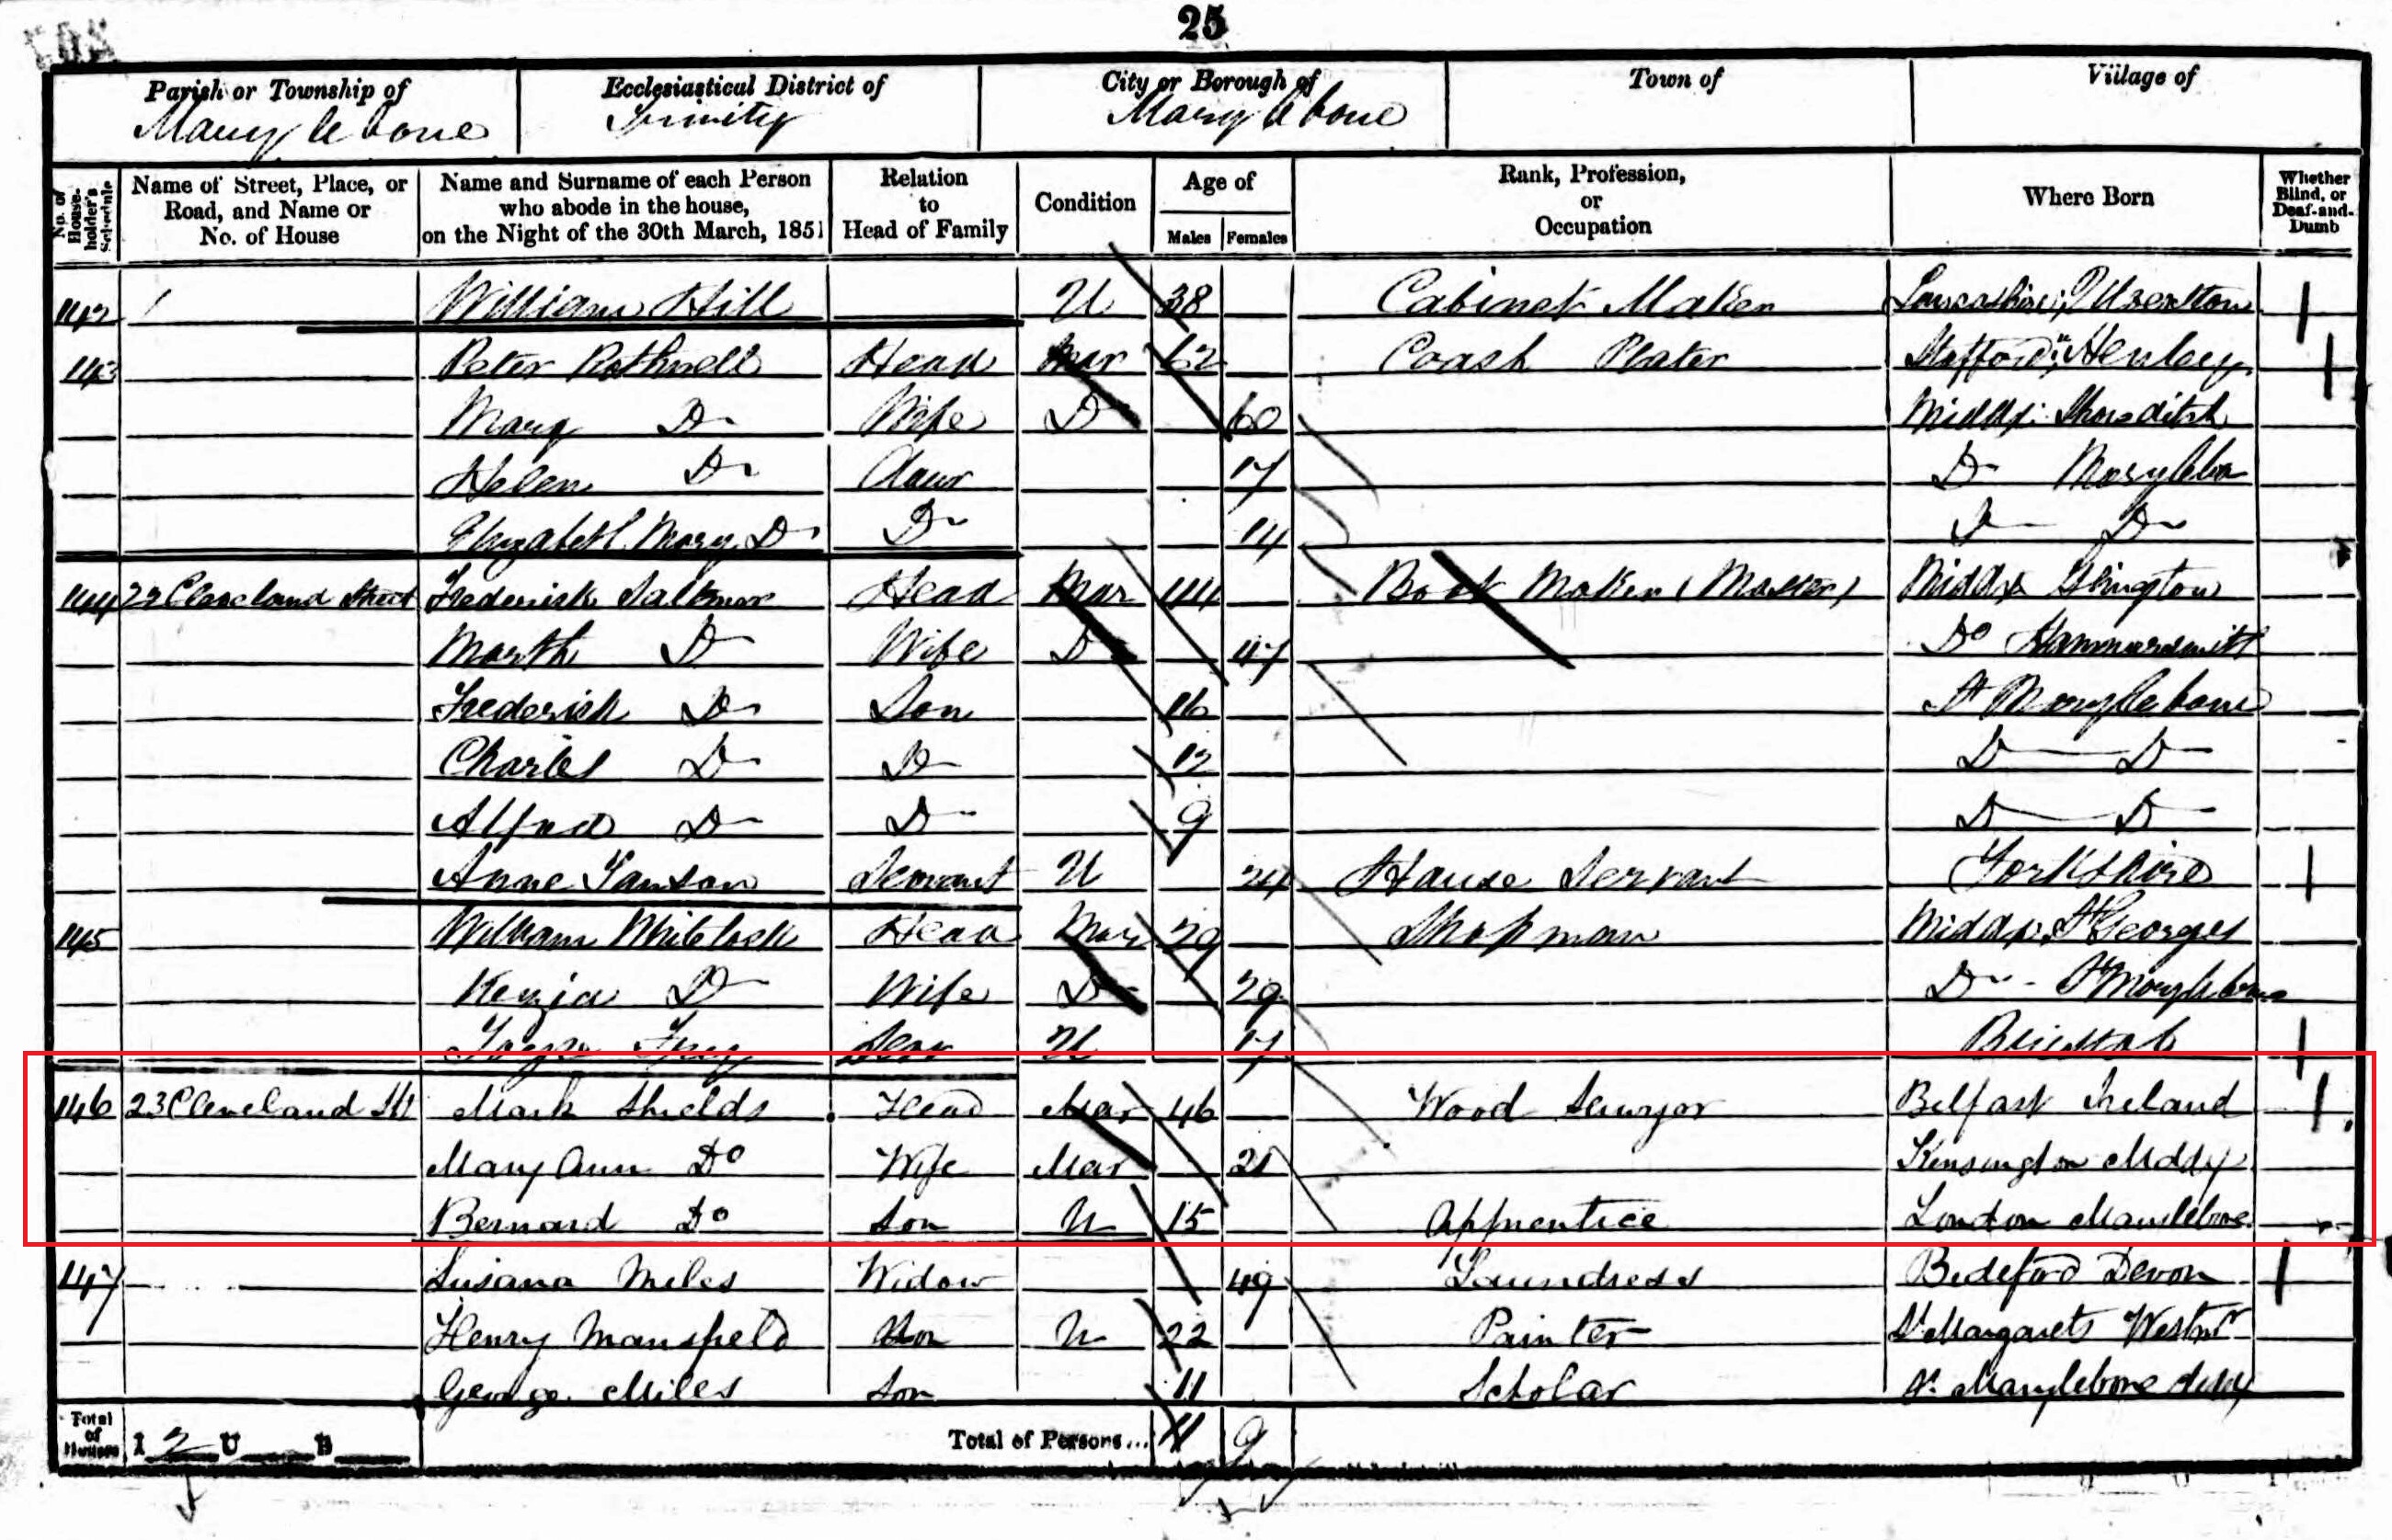 25
Parish or Township of Ecclesiastical District of City or Borough of Town of Village of
Marylebone Trinity Marylebone
No. of House-holder's Schedule Name of Street, Place, or Road, and Name or No. of House Name and Surname of each Person who abode in the house, on the Night of the 30th March, 1851 Relation to Head of Family Condition Age of Males Females Rank, Profession, or Occupation Where Born Whether Blind, or Deaf-and-Dumb
142 William Hill U 38 Cabinet Maker
143 Peter Rothwell Head Mar 62 Coach Plater Stafford: Henley
Mary Do Wife Do 60 Middx: Shoreditch
Helen Do Daur 17 Do Marylebo
Elizabeth Mary Do Do 14 Do Do
144 22 Cleveland Street Frederick Head Mar 44 Boot Maker (Master) Middx Islington
Marth Do Wife Do 47 Do Hammersmith
Frederick Do Son 16 St Marylebone
Charles Do Do 12 Do Do
Alfred Do Do 9 Do Do
Anne Servant U 24 House Servant Yorkshire
145 William Whitelock Head Mar 29 Shopman Middx St Georges
Kezia Do Wife Do 29 Do St Marylebone
U 17
146 23 Cleveland St Mark Shields Head Mar 46 Wood Sawyer Belfast Ireland
Mary Ann Do Wife Mar 21 Kensington Middx
Bernard Do Son U 15 Apprentice London Marylebone
147 Susana Miles Widow 49 Laundress Bideford Devon
Henry Mansfield Son U 22 Painter St Margarets Westmr
George Miles Son 11 Scholar St Marylebone Middx
Total of Houses I 2 U B Total of Persons... 11 9